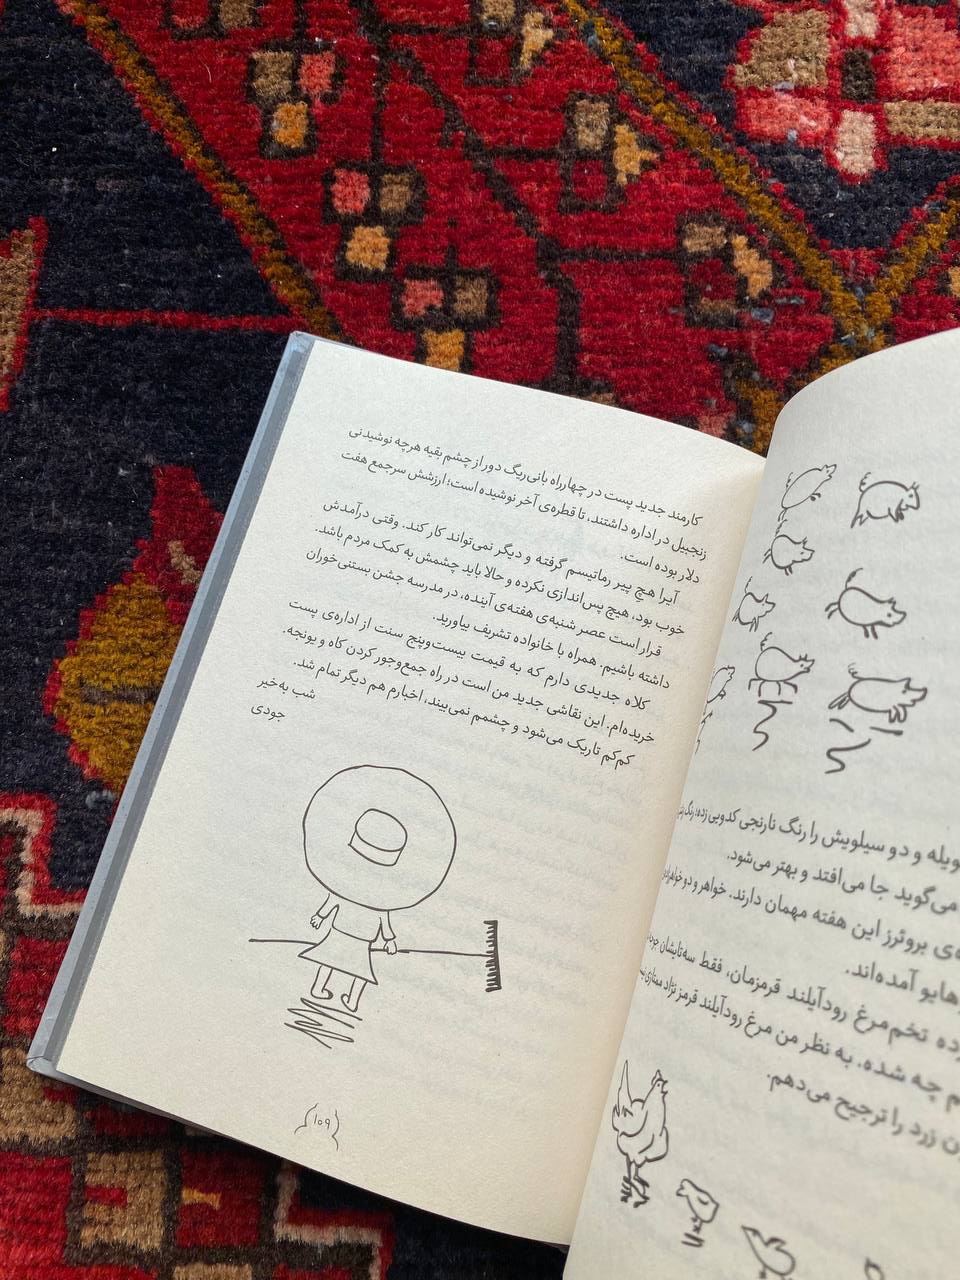 و دو سیلویش را رنگ نارنجی کدویی زده؛ رنگ
می‌گوید جا می‌افتد و بهتر می‌شود.
بروئرز این هفته مهمان دارند. خواهر و دو
آمده‌اند.
تخم‌مرغ رودآیلند قرمزمان، فقط سه‌تایشان
چه شده. به نظر من مرغ رودآیلند قرمز نژاد ممتازی
زرد را ترجیح می‌دهم.
کارمند جدید پست در چهارراه بانی‌ریگ دور از چشم بقیه هرچه نوشیدنی
زنجبیل در اداره داشتند، تا قطره‌ی آخر نوشیده است؛ ارزشش سرجمع هفت
دلار بوده است.
آیرا هچ پیر رماتیسم گرفته و دیگر نمی‌تواند کار کند. وقتی درآمدش
خوب بود، هیچ پس‌اندازی نکرده و حالا باید چشمش به کمک مردم باشد.
قرار است عصر شنبه‌ی هفته‌ی آینده، در مدرسه جشن بستنی‌خوران
داشته باشیم. همراه با خانواده تشریف بیاورید.
کلاه جدیدی دارم که به قیمت بیست‌وپنج سنت از اداره‌ی پست
خریده‌ام. این نقاشی جدید من است در راه جمع‌وجور کردن کاه و یونجه.
کم‌کم تاریک می‌شود و چشمم نمی‌بیند، اخبارم هم دیگر تمام شد.
شب به‌خیر
جودی
۱۰۹